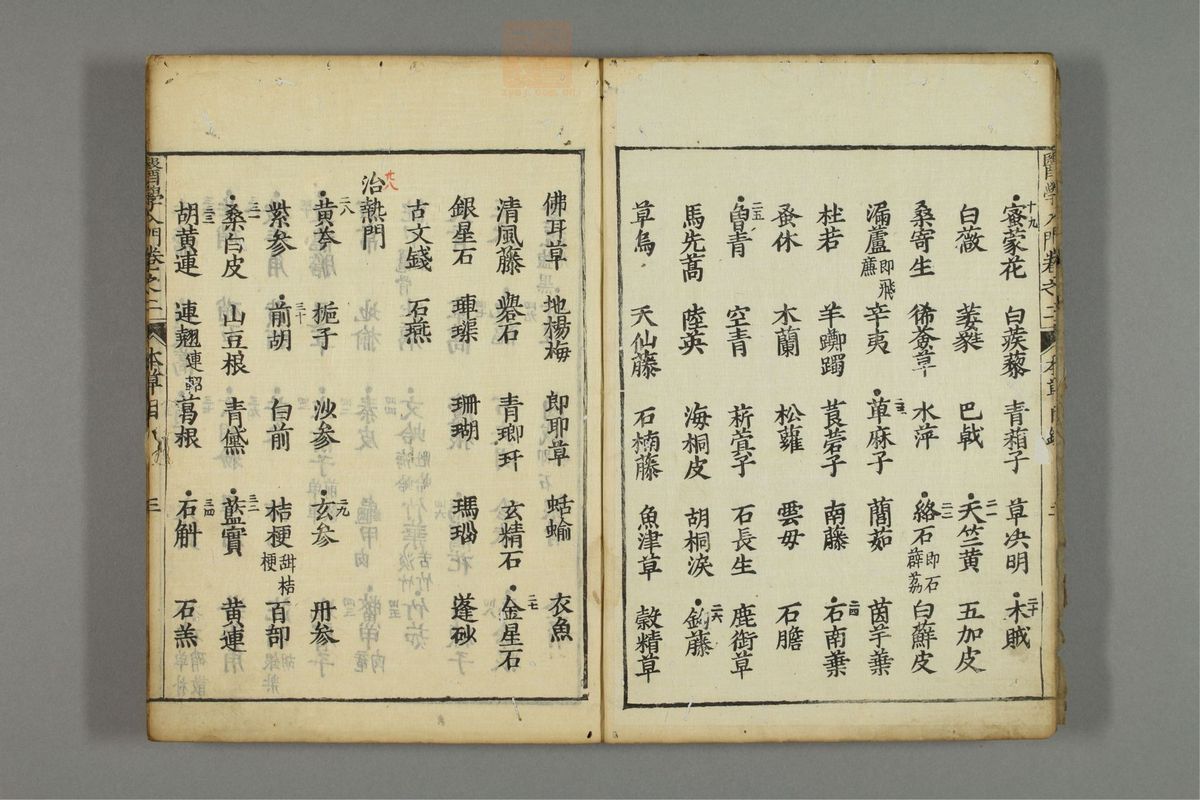 醫學入門卷之二
十九
蜜蒙花 白蒺藜 青葙子 草决明 二十 木賊
白薇 萎蕤 巴戟 二一 天竺黄 五加皮
桑寄生 狶薟草 水萍 二二 絡石 即石薜荔 白蘚皮
漏蘆 即飛廉 辛夷 萆麻子 䕡茹 茵芋葉
杜若 羊躑躅 莨菪子 南藤 二四 石南葉
蚤休 木蘭 松蘿 雲母 石膽
二五 曾青 空青 菥蓂子 石長生 鹿銜草
馬先蒿 陸英 海桐皮 胡桐淚 二六 鈎藤
草烏 天仙藤 石楠藤 魚津草 穀精草
佛耳草 地楊梅 郎耶草 蛞蝓 衣魚
清風藤 礜石 青瑯玕 玄精石 二七 金星石
銀星石 硨磲 珊瑚 瑪瑙 蓬砂
古文錢 石燕
治熱門
二八 黄芩 梔子 沙參 二九 玄参 丹参
紫参 三十 前胡 白前 桔梗 甜桔梗 百部
三一 桑白皮 山豆根 青黛 三二 藍實 黄連
三三 胡黄連 連翹 連軺 葛根 三四 石斛 石羔
醫學入門卷之二 本草目 三